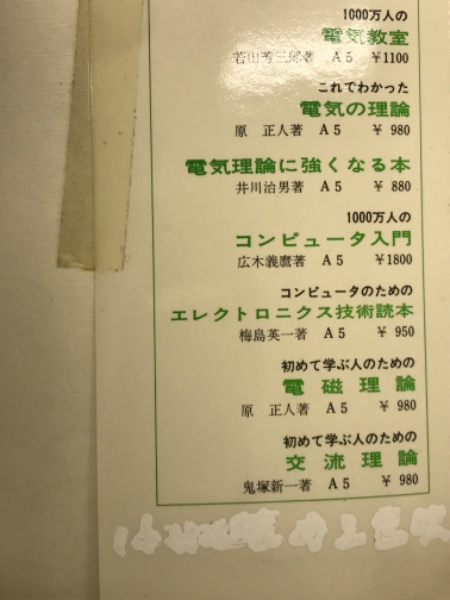 1000万人の
電気教室
若田芳三郎著 A5 ¥1100
これでわかった
電気の理論
原 正人著 A5 ¥ 980
電気理論に強くなる本
井川治男著 A5 ¥ 880
1000万人の
コンピュータ入門
広木義麿著 A5 ¥1800
コンピュータのための
エレクトロニクス技術読本
梅島英一著 A5 ¥ 950
初めて学ぶ人のための
電磁理論
原 正人著 A5 ¥ 980
初めて学ぶ人のための
交流理論
鬼塚新一著 A5 ¥ 980